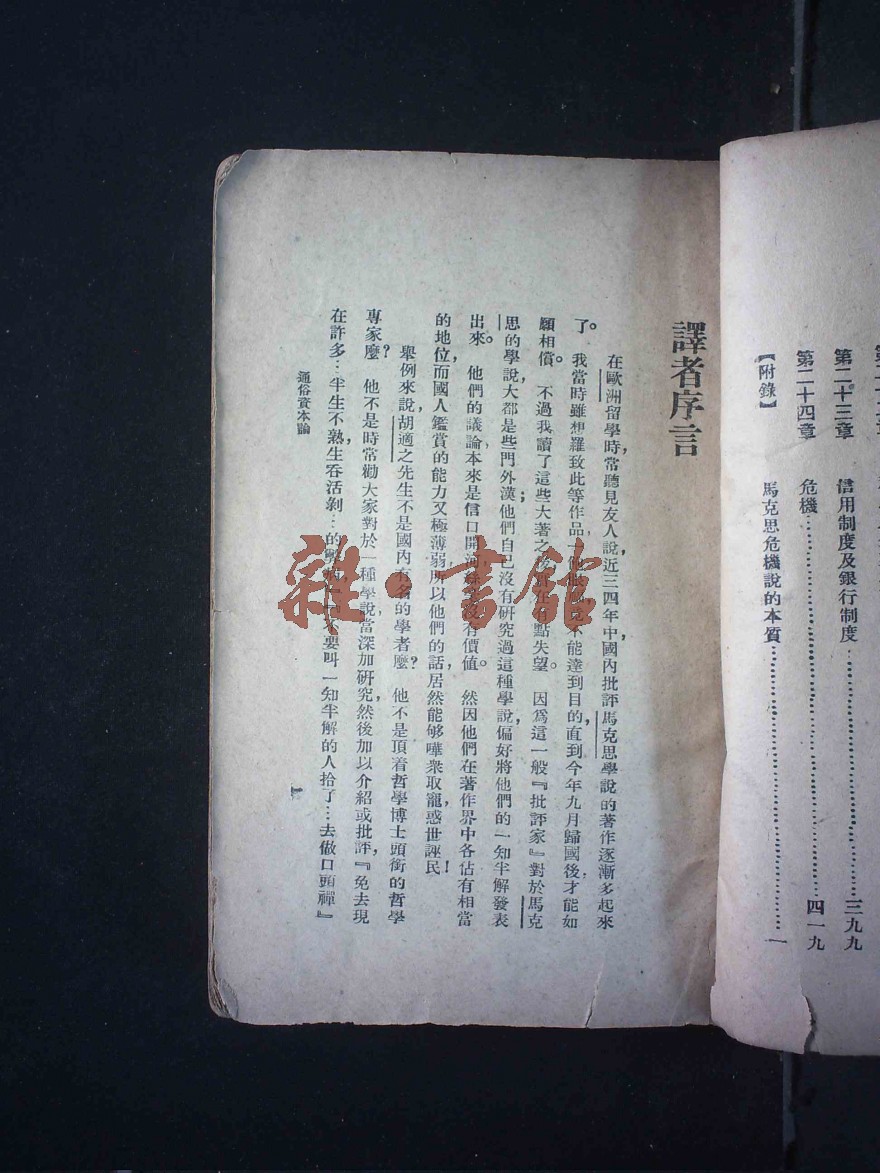 第二十三章 信用制度及銀行制度……三九九
第二十四章 危機……四一九
【附錄】 馬克思危機說的本質……一
譯者序言
在歐洲留學時，常聽見友人說，近三四年中，國內批評馬克思學說的著作逐漸多起來
了。 我當時雖想羅致此等作品，不能達到目的，直到今年九月歸國後，才能如
願相償。 不過我讀了這些大著之後，有點失望。 因爲這一般『批評家』對於馬克
思的學說大都是些門外漢；他們自己沒有研究過這種學說，偏好將他們的一知半解發表
出來。 他們的議論本來是信口開河，沒有價值。 然因他們在著作界中各佔有相當
的地位，而國人鑑賞的能力又極薄弱，所以他們的話，居然能够嘩衆取寵，惑世誣民！
舉例來說，胡適之先生不是國內有名的學者麼？ 他不是頂着哲學博士頭銜的哲學
專家麼？ 他不是時常勸大家對於一種學說當深加研究，然後加以介紹或批評，『免去現
在許多…半生不熟，生吞活剝…的 要叫一知半解的人拾了…去做口頭禪』
通俗資本論
一
雜·書館